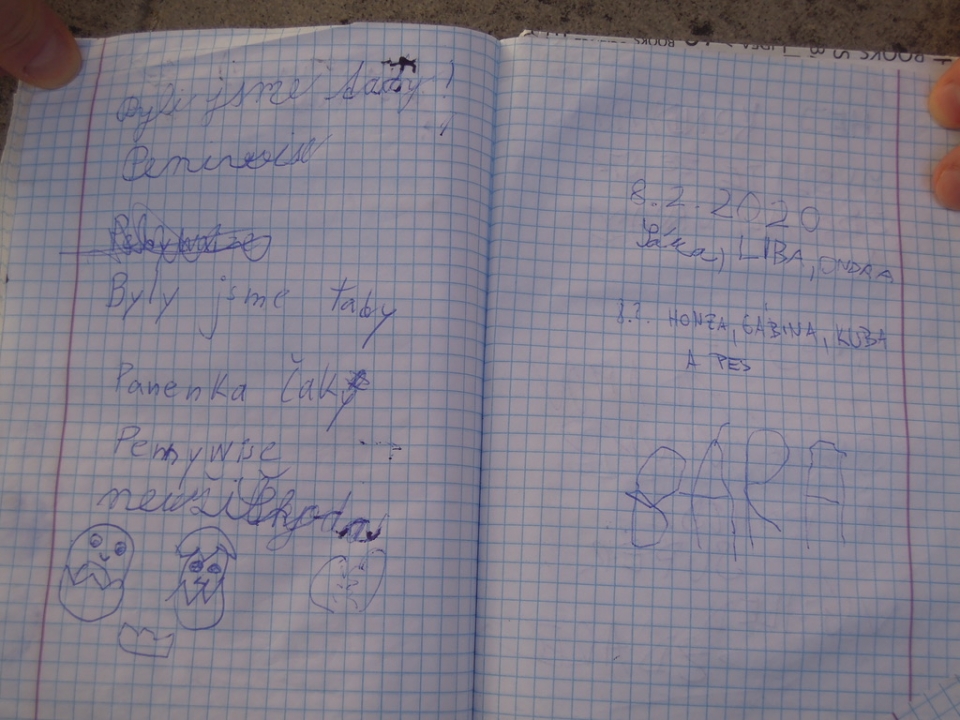 Byli jsme taby!
Peniwise
Byly jsme taby
Panenka Čaky
Pennywise
8.2.2020
LIBA, ONDRA
8.2. HONZA, GÁBINA, KUBA
A PES
BÁRA